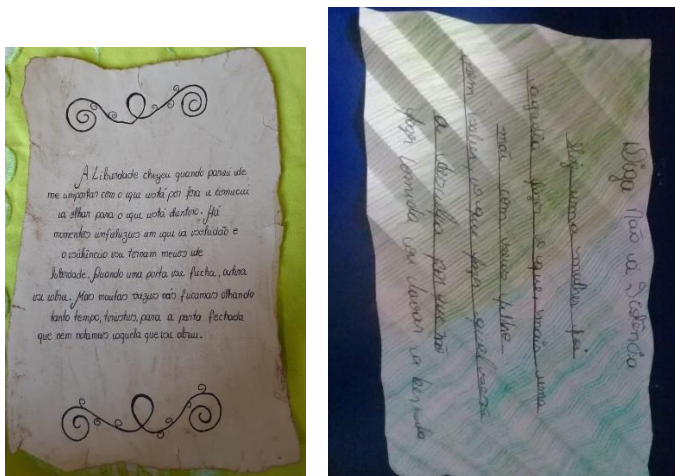 A Liberdade chegou quando parei de
me importar com o que está por fora e comecei
a olhar para o que está dentro. Há
momentos infelizes em que a solidão e
o silêncio se tornam meios de
liberdade. Quando uma porta se fecha, outra
se abre. Mas muitas vezes nós ficamos olhando
tanto tempo, tristes, para a porta fechada
que nem notamos aquela que se abriu.
Diga não a
Hoje uma mulher foi
por o que, mais uma
mãe com seus filho
sem saber o que faz
a desculpa por que não
fazer comida ou lavar a